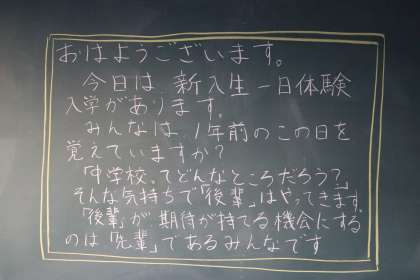 おはようございます。
今日は、新入生一日体験
入学があります。
みんなは、1年前のこの日を
覚えていますか？
「中学校ってどんなところだろう？」
そんな気持ちで「後輩」はやってきます。
「後輩」が期待が持てる機会にする
のは「先輩」であるみんなです